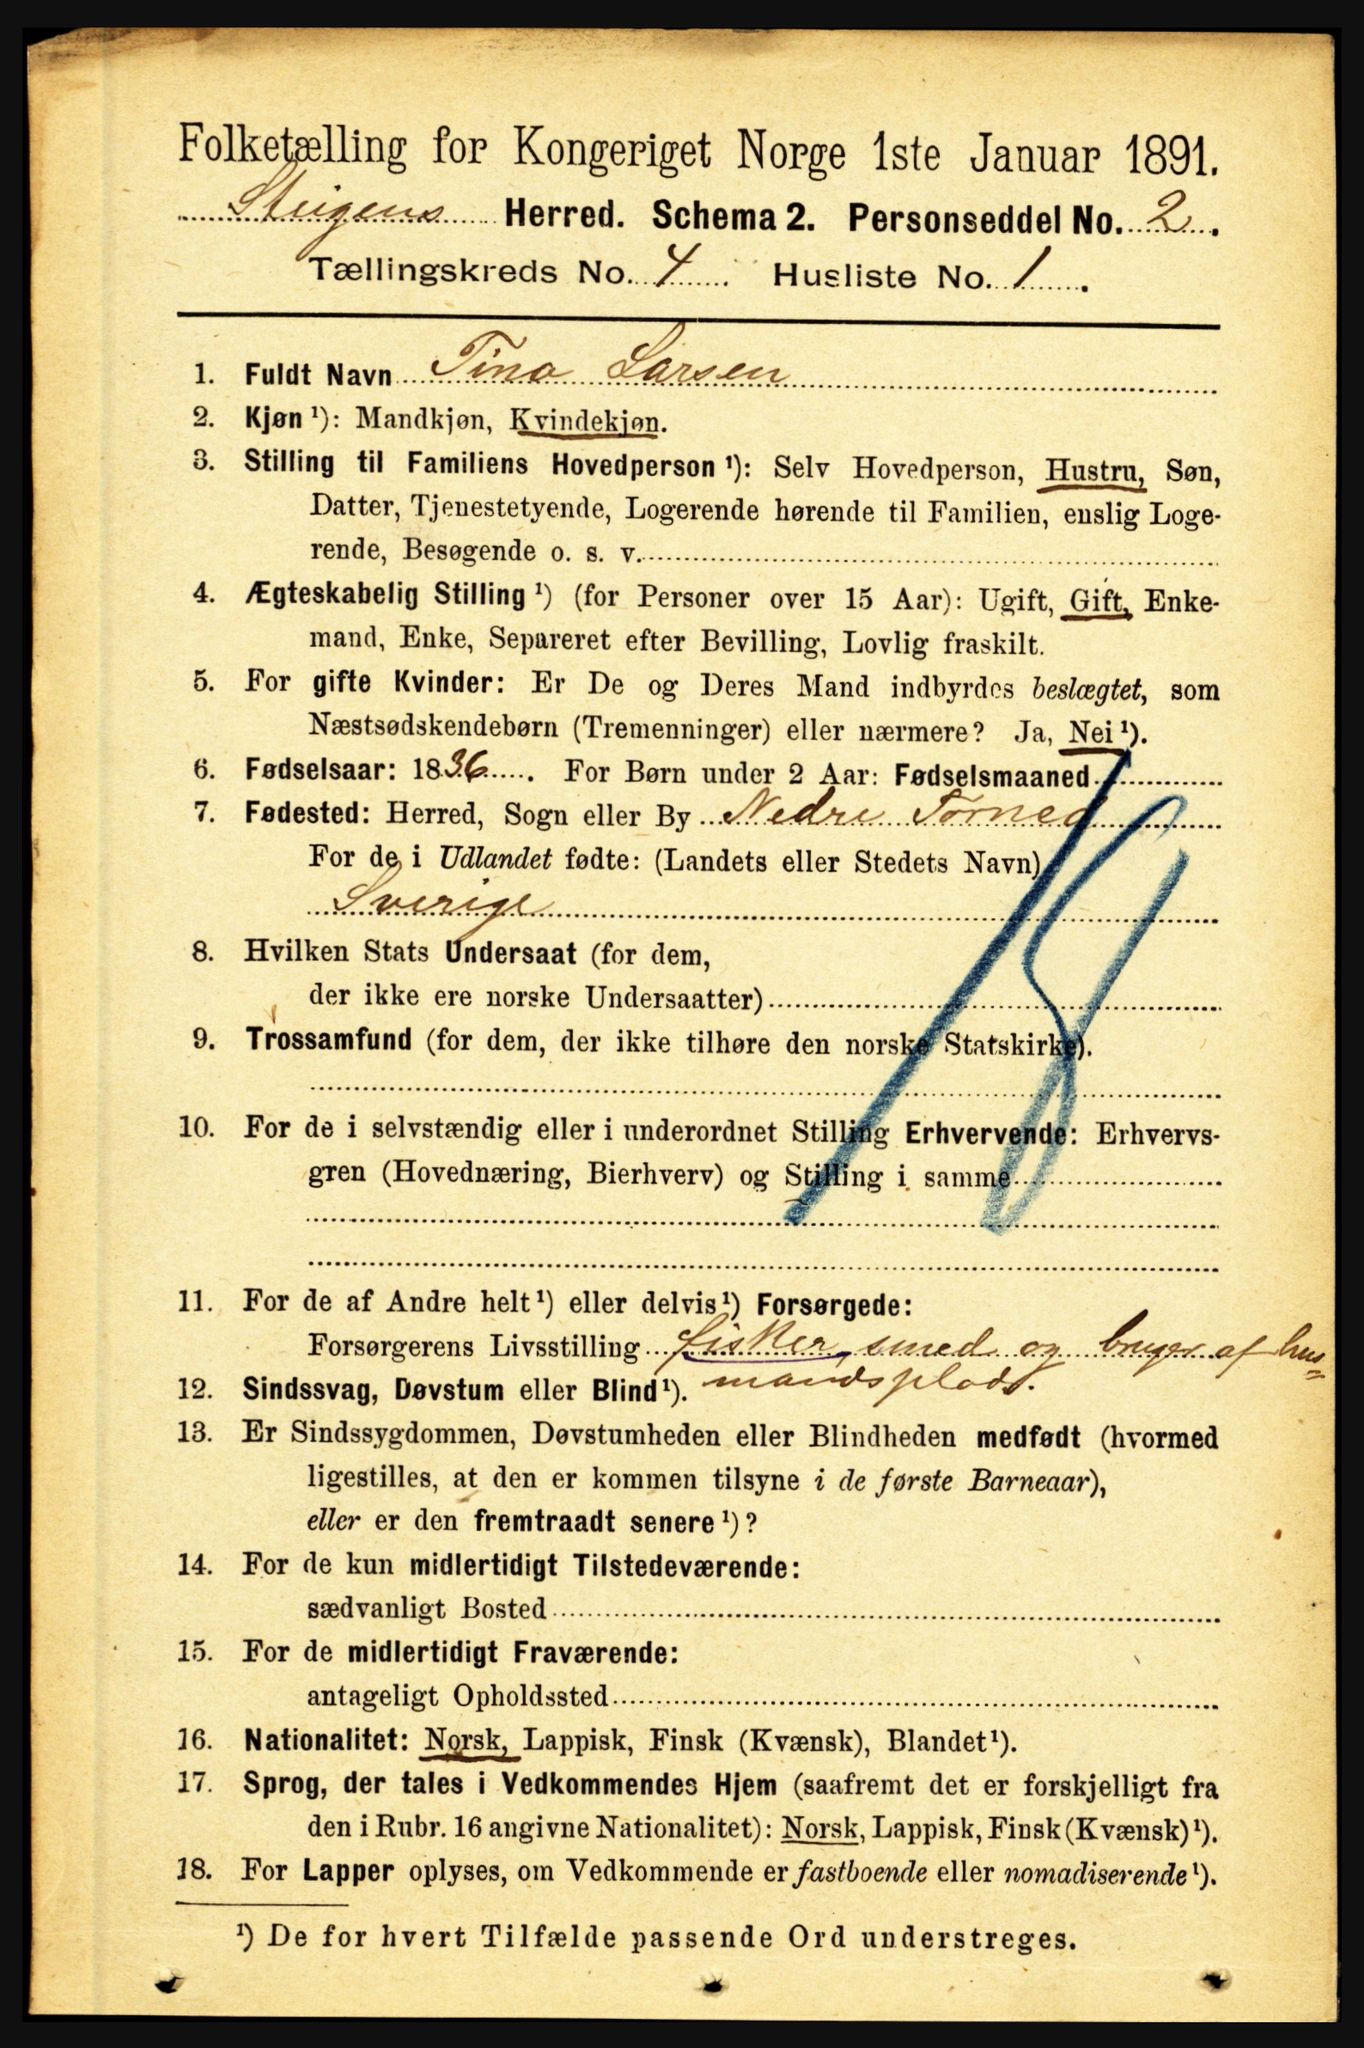 Folketælling for Kongeriget Norge 1ste Januar 1891.
Steigens Herred. Schema 2. Personseddel No. 2.
Tællingskreds No. 4 Husliste No. 1.
1. Fuldt Navn Tina Larsen
2. Kjøn¹): Mandkjøn, Kvindekjøn.
3. Stilling til Familiens Hovedperson¹): Selv Hovedperson, Hustru, Søn,
Datter, Tjenestetyende, Logerende hørende til Familien, enslig Loge-
rende, Besøgende o. s. v.
4. Ægteskabelig Stilling¹) (for Personer over 15 Aar): Ugift, Gift, Enke-
mand, Enke, Separeret efter Bevilling, Lovlig fraskilt.
5. For gifte Kvinder: Er De og Deres Mand indbyrdes beslægtet, som
Næstsødskendebørn (Tremenninger) eller nærmere? Ja, Nei¹).
6. Fødselsaar: 1836. For Børn under 2 Aar: Fødselsmaaned
7. Fødested: Herred, Sogn eller By Nedre Torned
For de i Udlandet fødte: (Landets eller Stedets Navn)
Sverige
8. Hvilken Stats Undersaat (for dem,
der ikke ere norske Undersaatter)
9. Trossamfund (for dem, der ikke tilhøre den norske Statskirke).
10. For de i selvstændig eller i underordnet Stilling Erhvervende: Erhvervs-
gren (Hovednæring, Bierhverv) og Stilling i samme
11. For de af Andre helt¹) eller delvis¹) Forsørgede:
Forsørgerens Livsstilling fisker, smed og bruger af hus=
mandsplads.
12. Sindssvag, Døvstum eller Blind¹).
13. Er Sindssygdommen, Døvstumheden eller Blindheden medfødt (hvormed
ligestilles, at den er kommen tilsyne i de første Barneaar),
eller er den fremtraadt senere¹)?
14. For de kun midlertidigt Tilstedeværende:
sædvanligt Bosted
15. For de midlertidigt Fraværende:
antageligt Opholdssted
16. Nationalitet: Norsk, Lappisk, Finsk (Kvænsk), Blandet¹).
17. Sprog, der tales i Vedkommendes Hjem (saafremt det er forskjelligt fra
den i Rubr. 16 angivne Nationalitet): Norsk, Lappisk, Finsk (Kvænsk)¹).
18. For Lapper oplyses, om Vedkommende er fastboende eller nomadiserende¹).
¹) De for hvert Tilfælde passende Ord understreges.